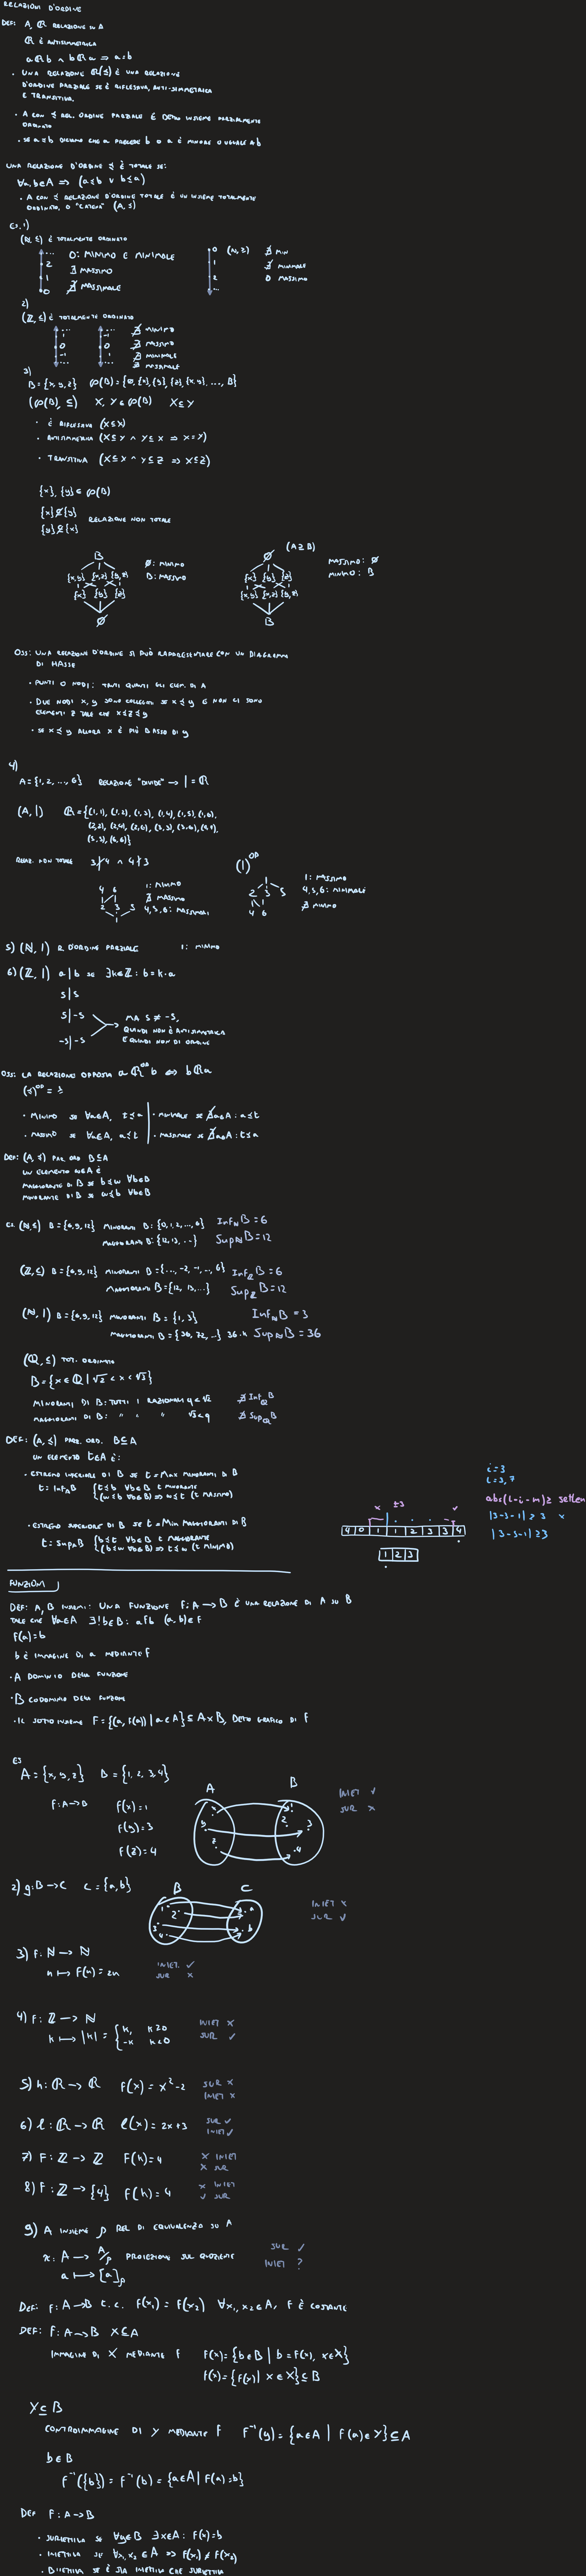 RELAZIONI D'ORDINE
DEF: A, ℝ RELAZIONE IN A
ℝ È ANTISIMMETRICA
aℝb ∧ bℝa ⇒ a=b
• UNA RELAZIONE ℝ(≼) È UNA RELAZIONE
D'ORDINE PARZIALE SE È RIFLESSIVA, ANTI-SIMMETRICA
E TRANSITIVA.
• A CON ≼ REL. ORDINE PARZIALE È DETTO INSIEME PARZIALMENTE
ORDINATO
• SE a≼b DICIAMO CHE a PRECEDE b O a È MINORE O UGUALE A b
UNA RELAZIONE D'ORDINE ≼ È TOTALE SE:
∀a,b∈A ⇒ (a≼b ∨ b≼a)
• A CON ≼ RELAZIONE D'ORDINE TOTALE È UN INSIEME TOTALMENTE
ORDINATO, O "CATENA" (A, ≼)
ES. 1)
(ℕ, ≤) È TOTALMENTE ORDINATO
... 2 1 0
0: MINIMO E MINIMALE
∄ MASSIMO
∄ MASSIMALE
0 1 2 ...
(ℕ, ≥)
∄ MIN
∄ MINIMALE
0 MASSIMO
2)
(ℤ, ≤) È TOTALMENTE ORDINATO
... 1 0 -1 ...
... -1 0 1 ...
∄ MINIMO
∄ MASSIMO
∄ MINIMALE
∄ MASSIMALE
3)
B={x,y,z} ℘(B)={∅,{x},{y},{z},{x,y},...,B}
(℘(B), ⊆) X, Y ∈ ℘(B) X⊆Y
• È RIFLESSIVA (X⊆X)
• ANTISIMMETRICA (X⊆Y ∧ Y⊆X ⇒ X=Y)
• TRANSITIVA (X⊆Y ∧ Y⊆Z ⇒ X⊆Z)
{x}, {y} ∈ ℘(B)
{x}⊈{y}
{y}⊈{x}
RELAZIONE NON TOTALE
B
{x,y} {x,z} {y,z}
{x} {y} {z}
∅
∅: MINIMO
B: MASSIMO
(A⊇B)
∅
{x} {y} {z}
{x,y} {x,z} {y,z}
B
MASSIMO: ∅
MINIMO: B
OSS: UNA RELAZIONE D'ORDINE SI PUÒ RAPPRESENTARE CON UN DIAGRAMMA
DI HASSE
• PUNTI O NODI: TANTI QUANTI GLI ELEM. DI A
• DUE NODI x, y SONO COLLEGATI SE x≼y E NON CI SONO
ELEMENTI z TALE CHE x≼z≼y
• SE x≼y ALLORA x È PIÙ BASSO DI y
4)
A={1,2,...,6} RELAZIONE "DIVIDE" → | = ℝ
(A, |) ℝ={(1,1), (1,2), (1,3), (1,4), (1,5), (1,6),
(2,2), (2,4), (2,6), (3,3), (3,6), (4,4),
(5,5), (6,6)}
RELAZ. NON TOTALE 3∤4 ∧ 4∤3
4 6
2 3 5
1
1: MINIMO
∄ MASSIMO
4,5,6: MASSIMALI
(|)ᴼᴾ
1
2 3 5
4 6
1: MASSIMO
4,5,6: MINIMALE
∄ MINIMO
5) (ℕ, |) R. D'ORDINE PARZIALE 1: MINIMO
6) (ℤ, |) a|b SE ∃k∈ℤ: b=k·a
5|5
5|-5
-5|-5
MA 5 ≠ -5,
QUINDI NON È ANTISIMMETRICA
E QUINDI NON DI ORDINE
OSS: LA RELAZIONE OPPOSTA aℝᴼᴾb ⇔ bℝa
(≼)ᴼᴾ = ≽
• MINIMO SE ∀a∈A, t≼a
• MINIMALE SE ∄a∈A: a≼t
• MASSIMO SE ∀a∈A, a≼t
• MASSIMALE SE ∄a∈A: t≼a
DEF: (A, ≼) PAR. ORD B⊆A
UN ELEMENTO w∈A È
MAGGIORANTE DI B SE b≼w ∀b∈B
MINORANTE DI B SE w≼b ∀b∈B
ES. (ℕ,≤) B={6,9,12} MINORANTI B: {0,1,2,...,6} Infₙ B=6
MAGGIORANTI B: {12,13,...} Supₙ B=12
(ℤ,≤) B={6,9,12} MINORANTI B={...,-2,-1,...,6} Inf B=6
MAGGIORANTI B={12,13,...} Sup B=12
(ℕ, |) B={6,9,12} MINORANTI B={1,3} Infₙ B=3
MAGGIORANTI B={36,72,...} 36·k Supₙ B=36
(ℚ, ≤) TOT. ORDINATO
B={x∈ℚ | √2<x<√3}
MINORANTI DI B: TUTTI I RAZIONALI q<√2 ∄ Inf B
MAGGIORANTI DI B: " " " √3<q ∄ Sup B
DEF: (A,≼) PARZ. ORD. B⊆A
UN ELEMENTO t∈A È:
• ESTREMO INFERIORE DI B SE t=MAX MINORANTI DI B
t=Inf B {t≼b ∀b∈B t MINORANTE
(w≼b ∀b∈B) ⇒ w≼t (t MASSIMO)
• ESTREMO SUPERIORE DI B SE t=MIN MAGGIORANTI DI B
t=Sup B {b≼t ∀b∈B t MAGGIORANTE
(b≼w ∀b∈B) ⇒ t≼w (t MINIMO)
i=3
i=3,7
abs(l-i-n)≥ setlen
|3-3-1|≥3 x
|3-5-1|≥3
x ±3 ✓
4 0 1 1 2 3 3 4
1 2 3
FUNZIONI
DEF: A, B INSIEMI: UNA FUNZIONE f: A→B È UNA RELAZIONE DI A SU B
TALE CHE ∀a∈A ∃!b∈B: afb (a,b)∈f
f(a)=b
b È IMMAGINE DI a MEDIANTE f
• A DOMINIO DELLA FUNZIONE
• B CODOMINIO DELLA FUNZIONE
• IL SOTTOINSIEME F={(a,f(a)) | a∈A}⊆A×B, DETTO GRAFICO DI f
ES
A={x,y,z} B={1,2,3,4}
f:A→B f(x)=1
f(y)=3
f(z)=4
A B
y z
1 2 3 4
INIET ✓
SUR ×
2) g:B→C C={a,b}
B C
1 2 3 4
a b
INIET ×
SUR ✓
3) f: ℕ→ℕ
n ↦ f(n)=2n
INIET. ✓
SUR ×
4) f: ℤ→ℕ
k ↦ |k| = {k, k≥0
-k k<0
INIET ×
SUR ✓
5) h: ℝ→ℝ f(x)=x²-2
SUR ×
INIET ×
6) l: ℝ→ℝ l(x)=2x+3
SUR ✓
INIET ✓
7) F: ℤ→ℤ F(k)=4
× INIET
× SUR
8) F: ℤ→{4} F(k)=4
× INIET
✓ SUR
9) A INSIEME ρ REL DI EQUIVALENZA SU A
π: A→A/ρ PROIEZIONE SUL QUOZIENTE
a ↦ [a]ρ
SUR ✓
INIET ?
DEF: f: A→B t.c. f(x₁)=f(x₂) ∀x₁,x₂∈A, f È COSTANTE
DEF: f: A→B X⊆A
IMMAGINE DI X MEDIANTE f f(X)={b∈B | b=f(x), x∈X}
f(X)={f(x) | x∈X}⊆B
Y⊆B
CONTROIMMAGINE DI Y MEDIANTE f f⁻¹(Y)={a∈A | f(a)∈Y}⊆A
b∈B
f⁻¹({b})=f⁻¹(b)={a∈A | f(a)=b}
DEF f: A→B
• SURIETTIVA SE ∀y∈B ∃x∈A: f(x)=b
• INIETTIVA SE ∀x₁,x₂∈A ⇒ f(x₁)≠f(x₂)
• BIIETTIVA SE È SIA INIETTIVA CHE SURIETTIVA